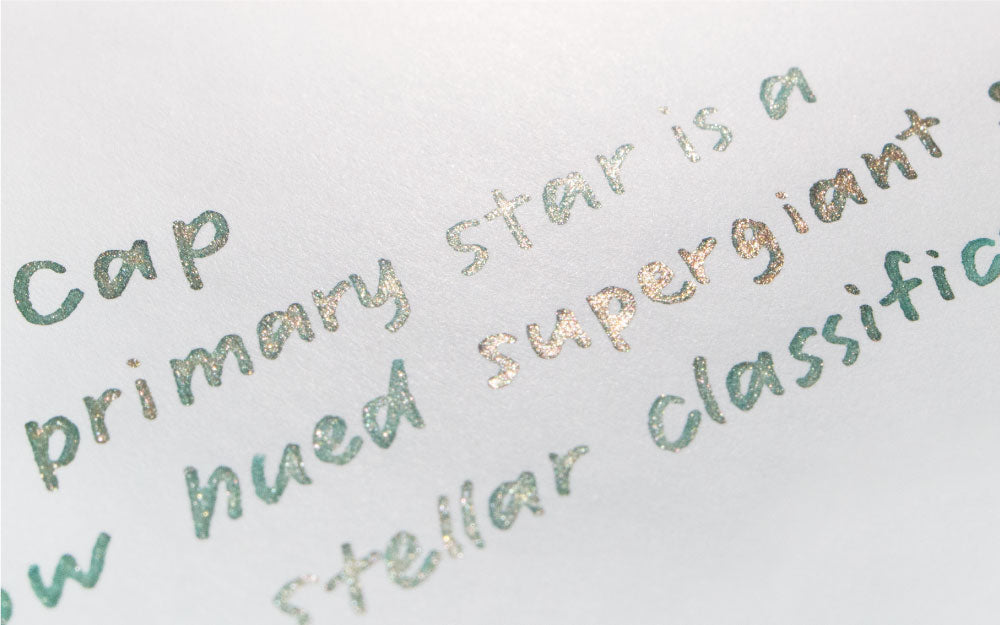 Cap
primary star is a
ow hued supergiant
stellar classific